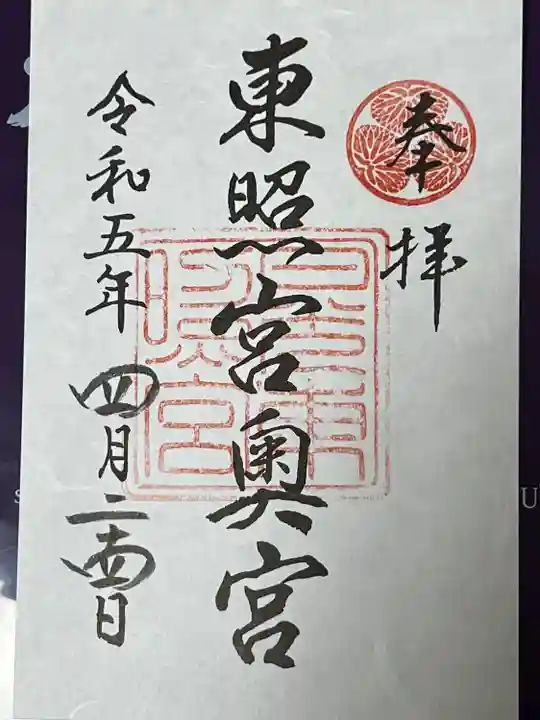 奉拝
東照宮奥宮
令和五年四月二十四日
U